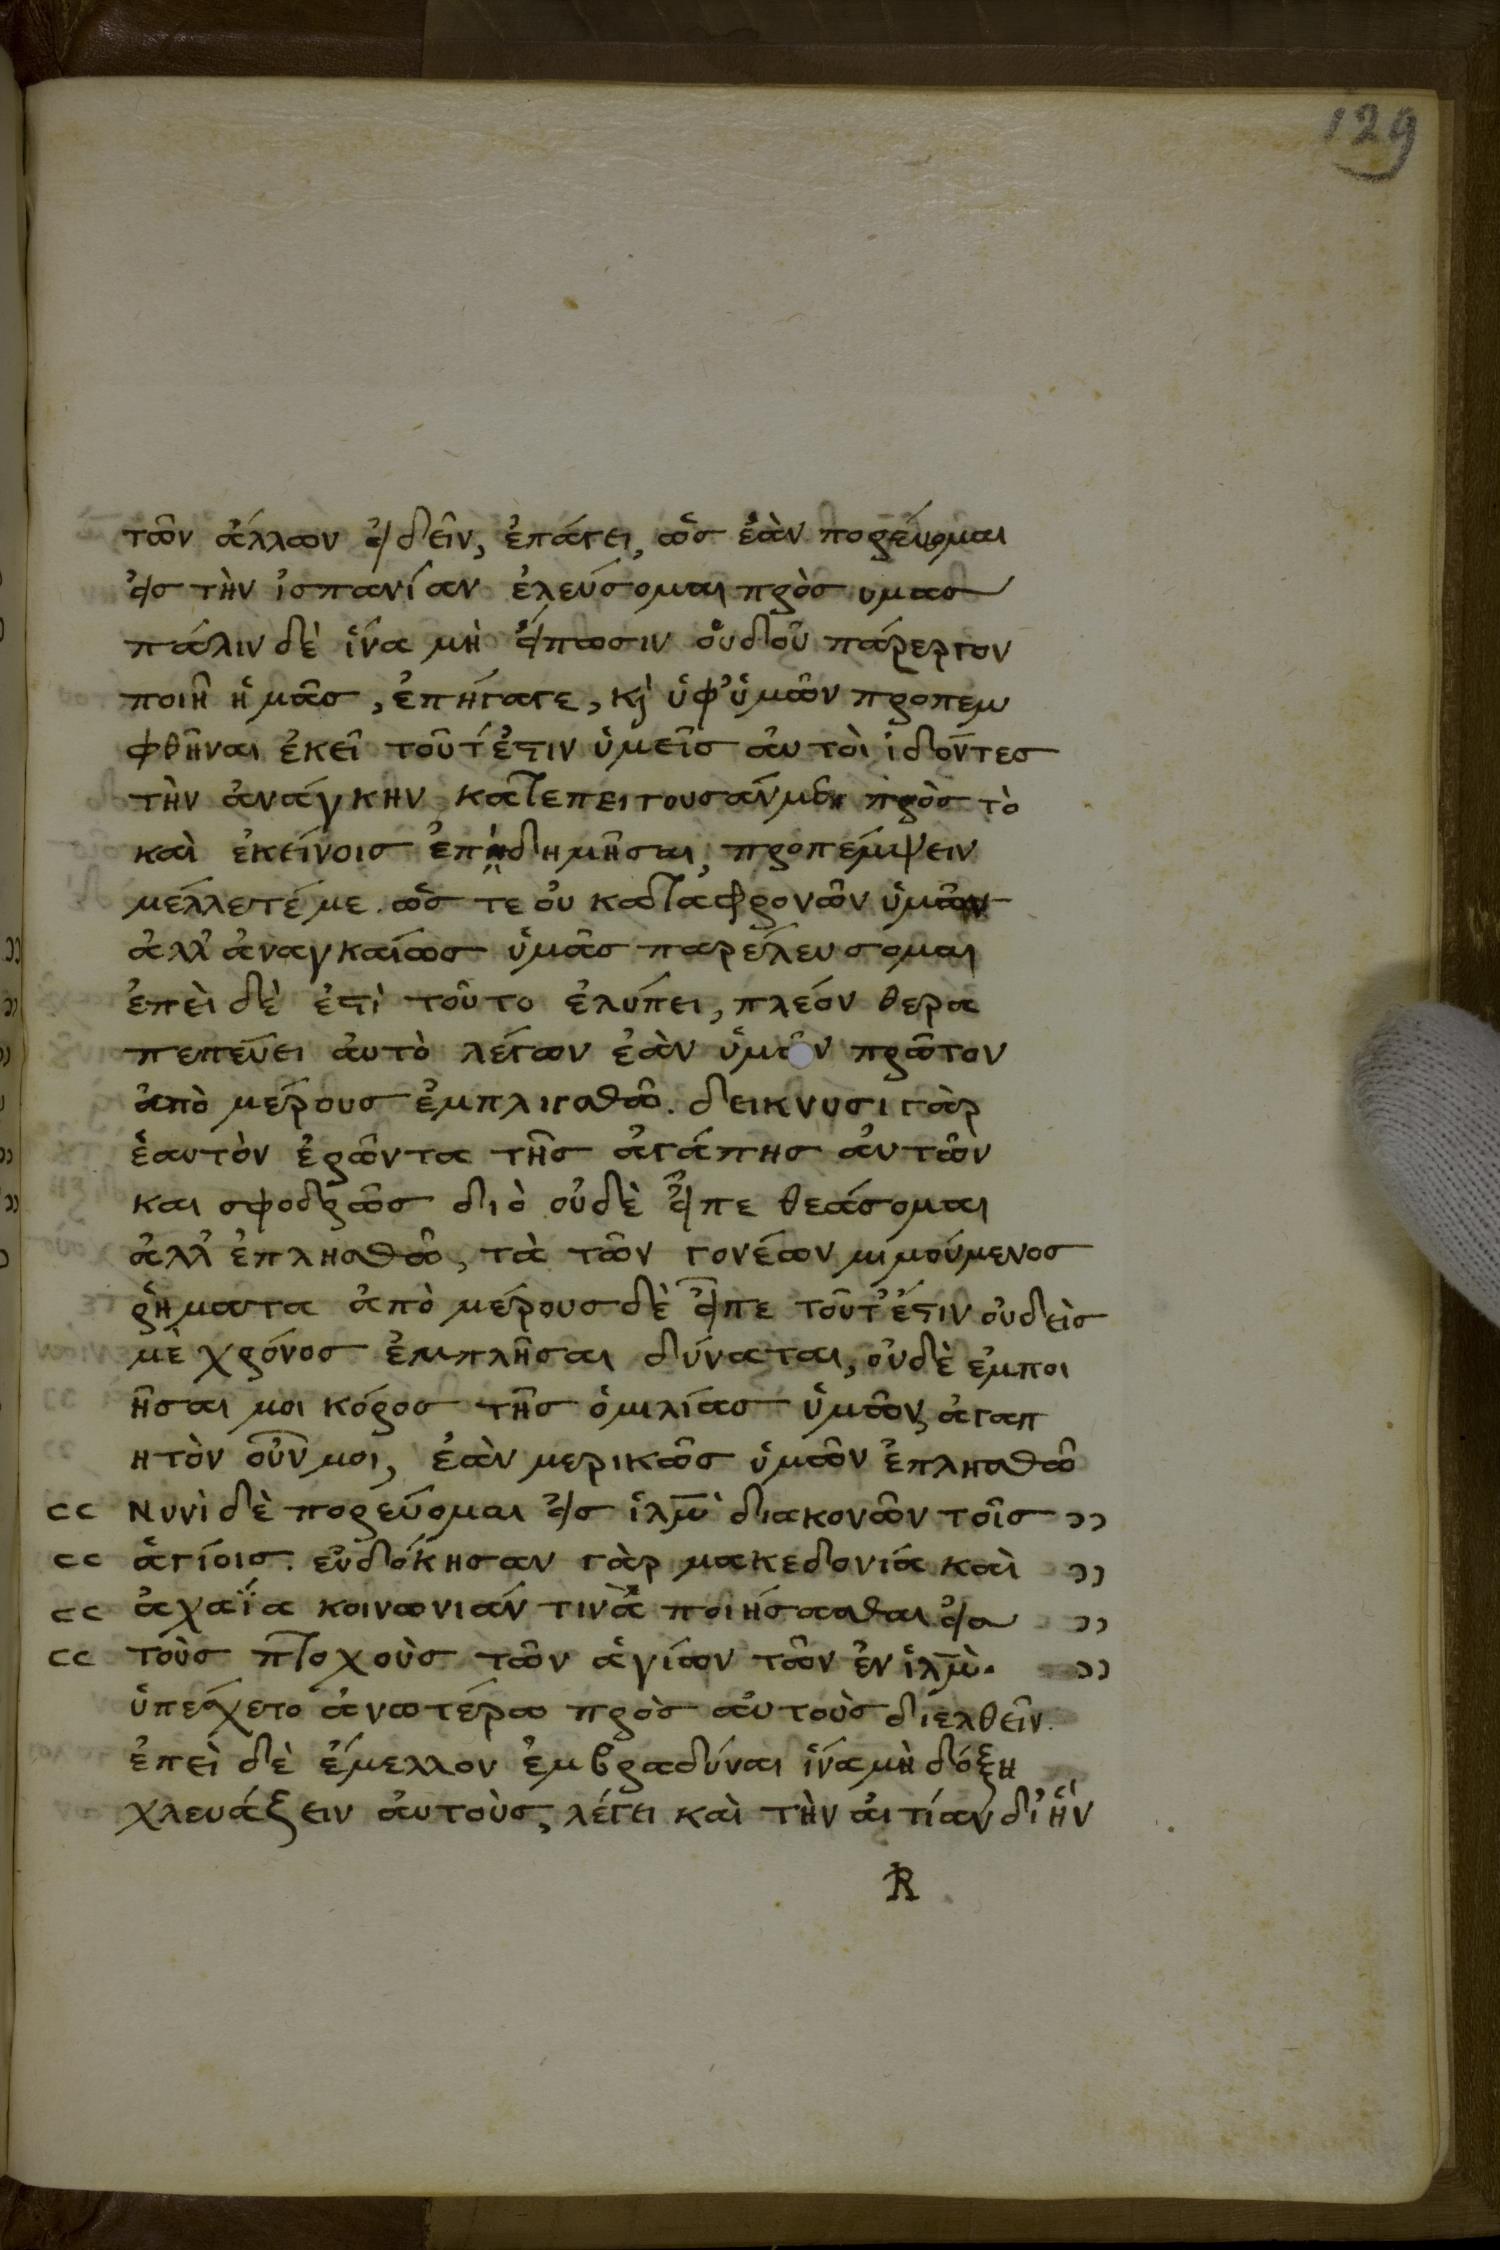 129
τῶν ἄλλων εἰδεῖν, ἐπάγει, ὡς ἐὰν πορεύομαι
εἰς τὴν ἰσπανίαν ἐλεύσομαι πρὸς υμας
πάλιν δὲ ἵνα μὴ εἴπωσιν οὐδοῦ πάρεργον
ποιῆ ἡμᾶς, ἐπήγαγε, κὶ ὑφ' ὑμῶν προπεμ
φθῆναι ἐκεῖ τοῦτ έστιν ὑμεῖς ἀυτοὶ ἰδόντες
τὴν ἀνάγκην πρὸς τὸ
καὶ ἐκείνοις ἐπιδημῆσαι, προπέμψειν
μέλλετέ με. ὥς τε ου καταφρονῶν ὑμῶν
ἀλλ' ἀναγκαίως ὑμᾶς παρέλευσομαι
ἐπεὶ δὲ ἐστὶ τοῦτο ἐλύπει, πλέον θερα
πεπεύει ἀυτὸ λέγων ἐὰν ὑμῶν πρῶτον
ἀπὸ μέρους ἐμπλιγσθῶ. δεικνυσι γὰρ
ἑαυτὸν ἐρῶντα τῆς ἀγάπης ἀυτῶν
και σφοδρῶς διὸ οὐδὲ εἶπε θεάσομαι
ἀλλ' ἐπλησθῶ, τὰ τῶν γονέων μιμούμενος
ῥήματα ἀπὸ μέρους δὲ εἶπε τοῦτ' ἐστιν οὐδεὶς
μὲ χρόνος ἐμπλῆσαι δύναται, οὐδὲ ἐμποι
ῆσαι μοι κόρος τῆς ὁμιλίας ὑμῶν, ἀγαπ
ητὸν οὖν μοι, ἐὰν μερικῶς ὑμῶν ἐπλησθῶ
Νυνὶ δὲ πορεύομαι εἰς ἱλημ̀ διακονῶν τοῖς
ἁγίοις. εὐδόκησαν γὰρ μακεδονία καὶ
ἀχαΐα κοινωνιάν τινὰ ποιήσασθαι εἰς
τοὺς πτοχοὺς τῶν ἁγίων τῶν ἐν ἱλημ̀.
ὑπέσχετο ἀνωτέρω πρὸς αὐτοὺς διελθεῖν.
ἐπεὶ δὲ ἐμελλον ἐμβραδύναι ἵνα μὴ δόξη
χλευάξειν ἀυτοὺς, λέγει καὶ τὴν ἀιτίαν δι' ἣν